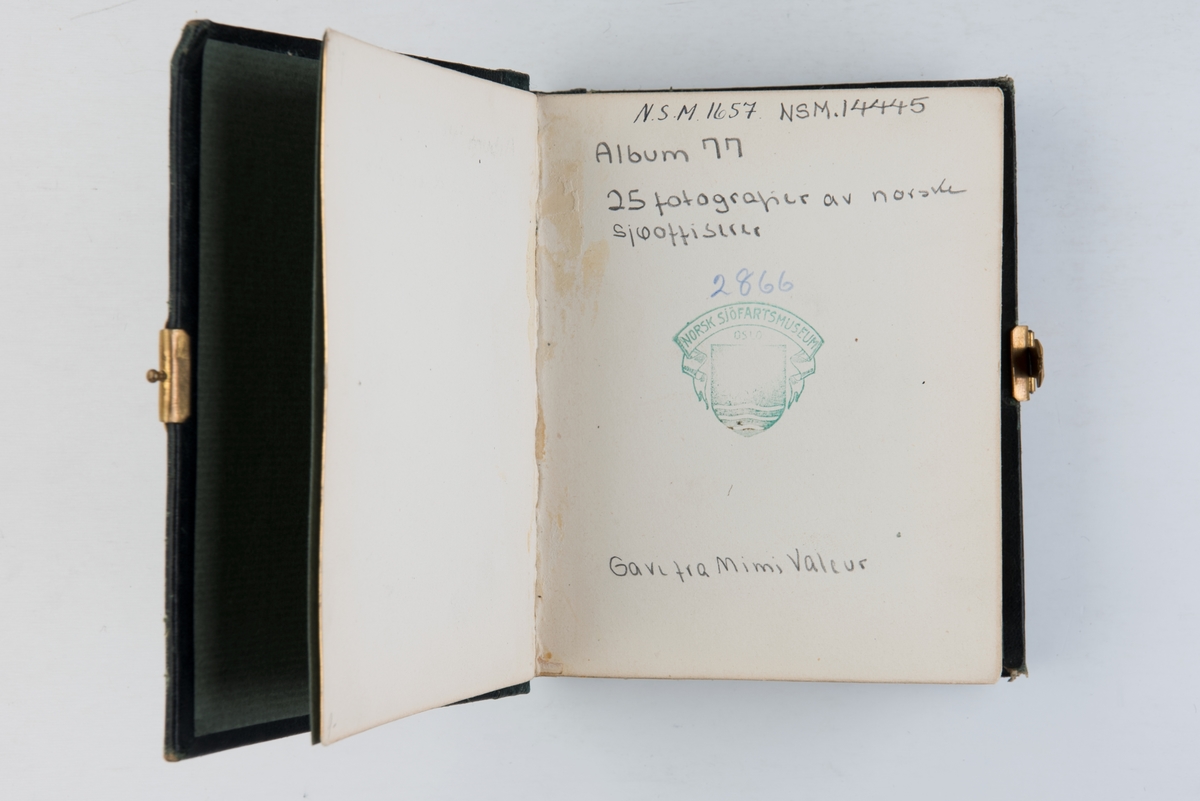 N.S.M. 1657. NSM.14445
Album 77
25 fotografier av norske
sjøoffiserer
2866
NORSK SJÖFARTSMUSEUM
OSLO
Gave fra Mimi Valeur